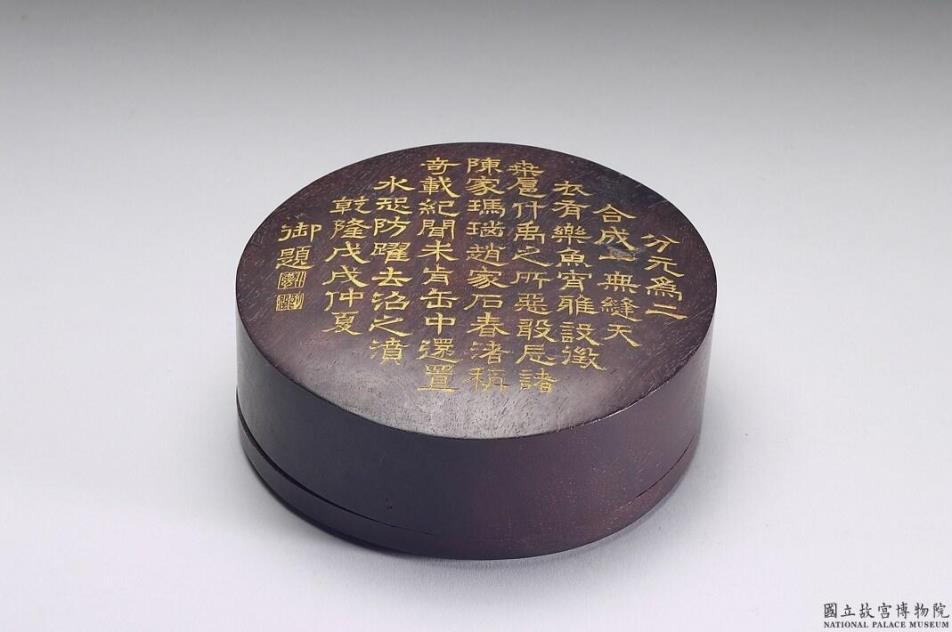 分元爲二
合成一無縫天
衣有樂魚宵雅設徵
桑扈什禹之所惡敢忘諸
陳家瑪瑙趙家石春渚稱
奇載紀聞未肯缶中還置
水恐防躍去沿之濆
乾隆戊戌仲夏
御題
國立故宮博物院
NATIONAL PALACE MUSEUM